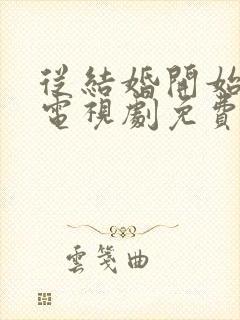 從結婚開始
電視劇免費
雲箋曲